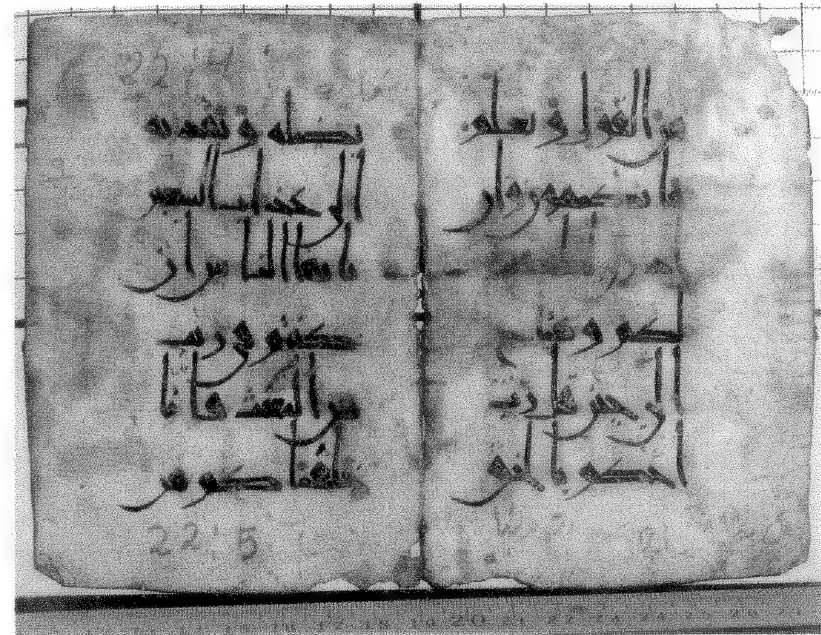 من القول ويعلم
ما تكتمون وان
لكم ومتع
الى حين قل رب
احكم بالحق
22:4
يضله ويهديه
الى عذاب السعير
يايها الناس ان
كنتم في ريب
من البعث فانا
خلقنكم من
22:5